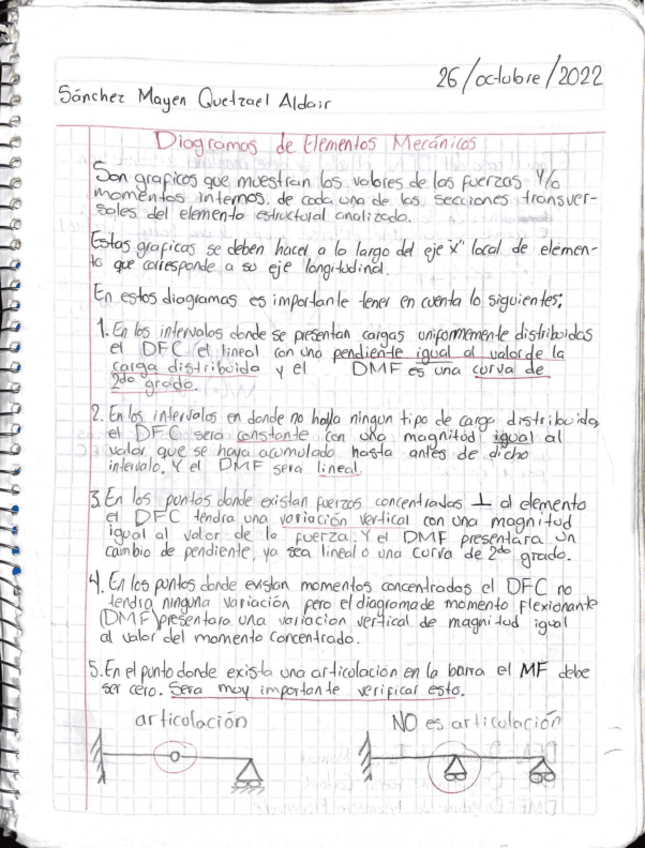 26/octubre/2022
Sánchez Mayen Quetzael Aldair
Diagramas de Elementos Mecánicos
Son graficos que muestran los valores de las fuerzas y/o
momentos internos. de cada una de las secciones transver-
sales del elemento estructural analizado.
Estas graficas se deben hacer a lo largo del eje "x" local de elemen-
to que corresponde a su eje longitudinal.
En estos diagramas es importante tener en cuenta lo siguientes:
1. En los intervalos donde se presentan cargas uniformemente distribuidas
el DFC el lineal con una pendiente igual al valor de la
carga distribuida y el DMF es una curva de
2do grado.
2. En los intervalos en donde no halla ningun tipo de carga distribuida
el DFC sera constante con una magnitud igual al
valor que se haya acumulado hasta antes de dicho
intervalo. Y el DMF sera lineal.
3. En los puntos donde existan fuerzas concentradas ⊥ al elemento
el DFC tendra una variación vertical con una magnitud
igual al valor de la fuerza. Y el DMF presentara un
cambio de pendiente, ya sea lineal o una curva de 2do grado.
4. En los puntos donde existan momentos concentrados el DFC no
tendra ninguna variación pero el diagrama de momento Flexionante
(DMF) presentara una variacion vertical de magnitud igual
al valor del momento concentrado.
5. En el punto donde exista una articulación en la barra el MF debe
ser cero. Sera muy importante verificar esto.
articulación NO es articulación